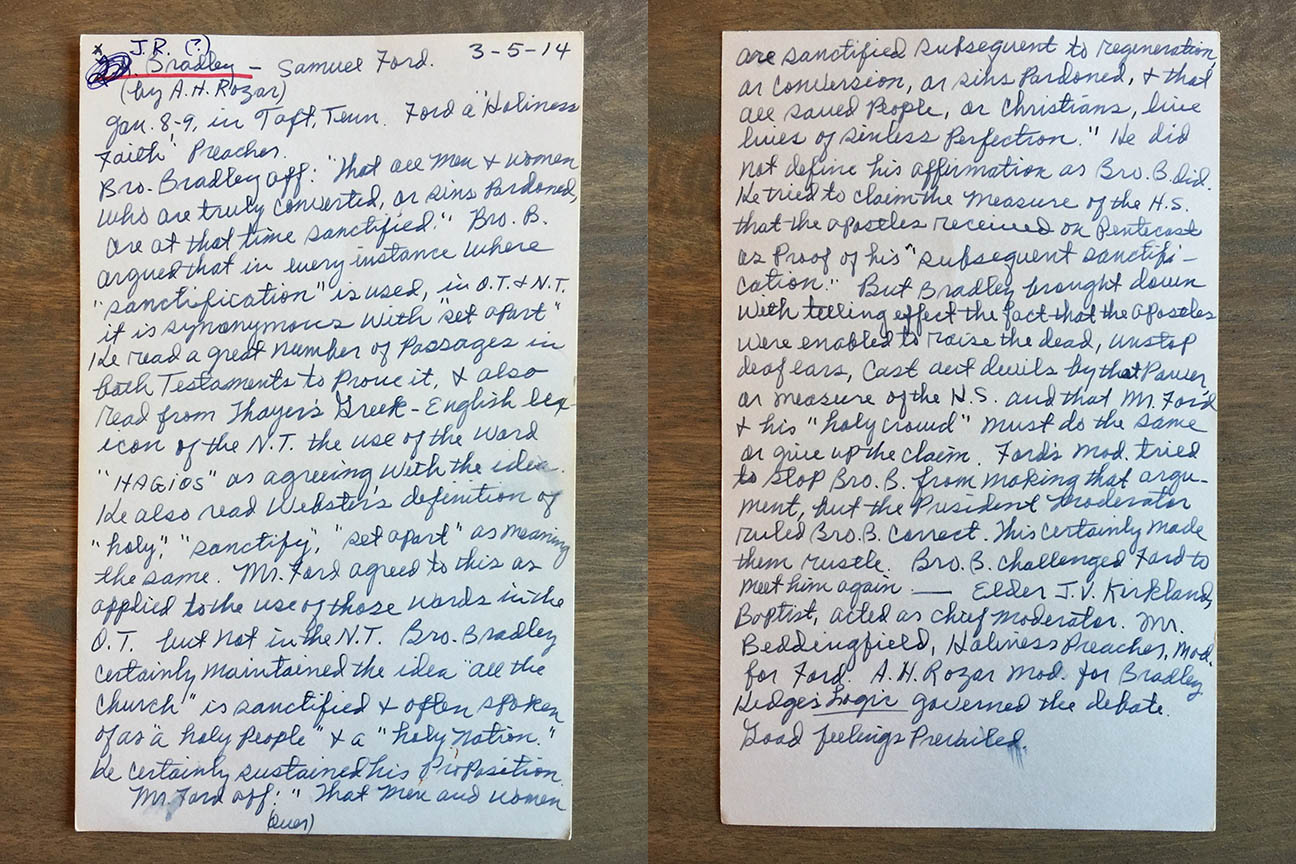 J.R. (?)
x . Bradley - Samuel Ford. 3-5-14
(by A.H. Rozar)
Jan. 8-9, in Taft, Tenn. Ford a "Holiness
Faith" Preacher.
Bro. Bradley aff: "That all men & women
who are truly converted, or sins pardoned,
are at that time sanctified." Bro. B.
argued that in every instance where
"sanctification" is used, in O.T. & N.T.
it is synonymous with "set apart"
He read a great number of passages in
both Testaments to prove it, & also
read from Thayer's Greek-English lex-
icon of the N.T. the use of the word
"HAGIOS" as agreeing with the idea.
He also read Webster's definition of
"holy," "sanctify," "set apart" as meaning
the same. Mr. Ford agreed to this as
applied to the use of those words in the
O.T. but not in the N.T. Bro. Bradley
certainly maintained the idea "all the
church" is sanctified & often spoken
of as a "holy people" & a "holy nation."
He certainly sustained his proposition
Mr. Ford aff: "That men and women
(over)
are sanctified subsequent to regeneration,
or conversion, or sins pardoned, & that
all saved people, or Christians, live
lives of sinless perfection." He did
not define his affirmation as Bro. B. did.
He tried to claim the measure of the H.S.
that the apostles received on Pentecost
as proof of his "subsequent sanctifi-
cation." But Bradley brought down
with telling effect the fact that the apostles
were enabled to raise the dead, unstop
deaf ears, cast out devils by that power
or measure of the H.S. and that Mr. Ford
& his "holy crowd" must do the same
or give up the claim. Ford's Mod. tried
to stop Bro. B. from making that argu-
ment, but the President Moderator
ruled Bro. B. correct. This certainly made
them rustle. Bro. B. challenged Ford to
meet him again — Elder J.V. Kirkland,
Baptist, acted as chief moderator. Mr.
Beddingfield, Holiness Preacher, Mod.
for Ford. A.H. Rozar Mod. for Bradley
Hedge's Logic governed the debate.
Good feelings prevailed.